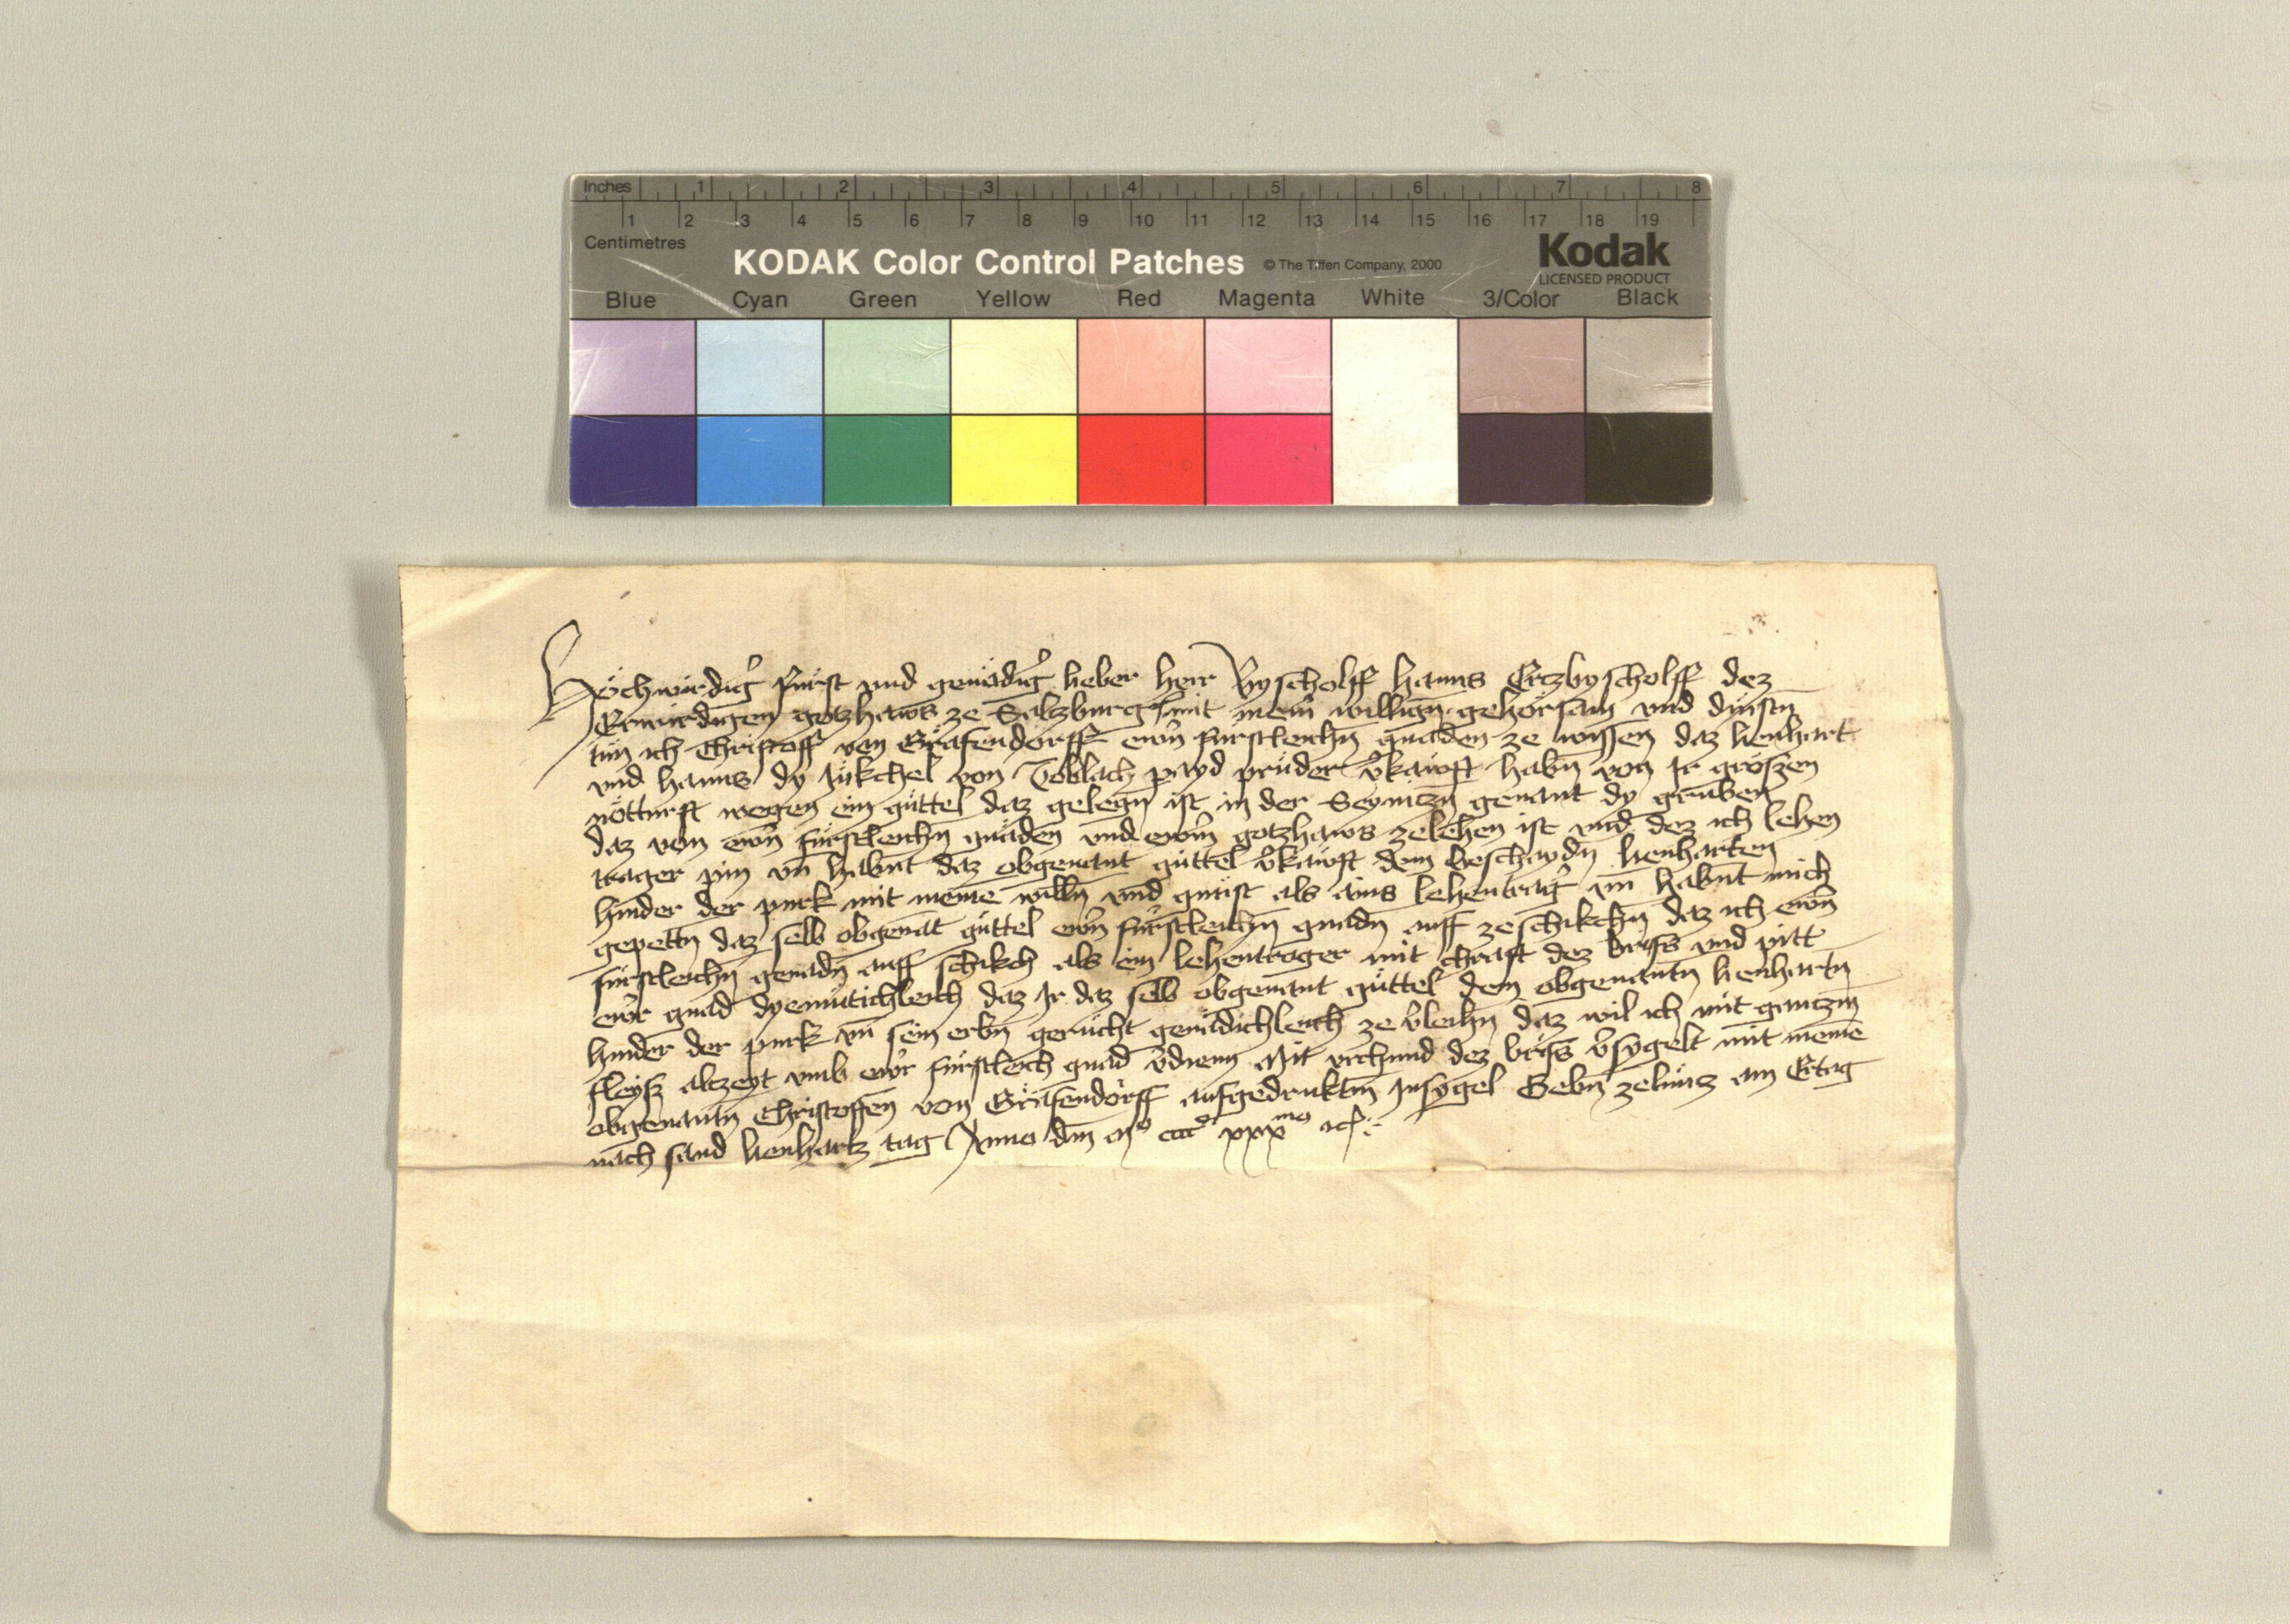 Inches 1 2 3 4 5 6 7 8
1 2 3 4 5 6 7 8 9 10 11 12 13 14 15 16 17 18 19
Centimetres
KODAK Color Control Patches © The Tiffen Company, 2000 Kodak
LICENSED PRODUCT
Blue Cyan Green Yellow Red Magenta White 3/Color Black
Höchwirdig̉ Fürst vnd genädig̉ lieber herr Byscholff hanns Ertzbyscholff dez
Erwirdigen gotzhaws ze Salzburg mit meim̄ willign̄ gehörsam vnd dinstn̄
tün ich Christoff von Gräfendorff ewrn̄ fürstleichn̄ gnaden ze wissen daz lienhart
vnd hanns dy Jükchel von Toblach payd prüder v̉kawft habn̄ von Jr grössen
nötturft wegen ein güttel daz gelegn̄ ist in der genant dy grüben
daz von ewrn̄ fürstleichn̄ gnäden vnd ewrm̄ gotzhaws zelehen ist vnd dez ich lehen
trager pin vn̄ habnt daz obgenant güttel v̉kawft dem beschaydn̄ lienharten
hinder der purk mit meine willn̄ vnd gunst als ains lehentrag̉ vn̄ habnt mich
gepettn̄ daz selb obgenāt güttel ewrn̄ fürstleichn̄ gnadn̄ auff zeschikchn̄ daz ich ewrn̄
fürstleichn̄ genadn̄ auff schikch als ein lehentrager mit chraft dez briefs vnd pitt
ewr gnad dyemütichleich daz Jr daz selb obgenant güttel dem obgenantn̄ lienhartn̄
hinder der purk vn̄ sein erbn̄ gerücht genädichleich ze v̉leihn̄ daz wil ich mit gantzm̄
fleyss altzeyt vmb ewr fürstleich gnad v̉dienn Mit vrchund dez briefs v̉sygelt mit meine
obgenantn̄ Christoffen von Gräfendörff aufgedruktm̄ Jnsygel Gebn̄ zelüncz am Ertag
nach sand lienhartz tag Anno dm̄ mº ccccº xxxmo